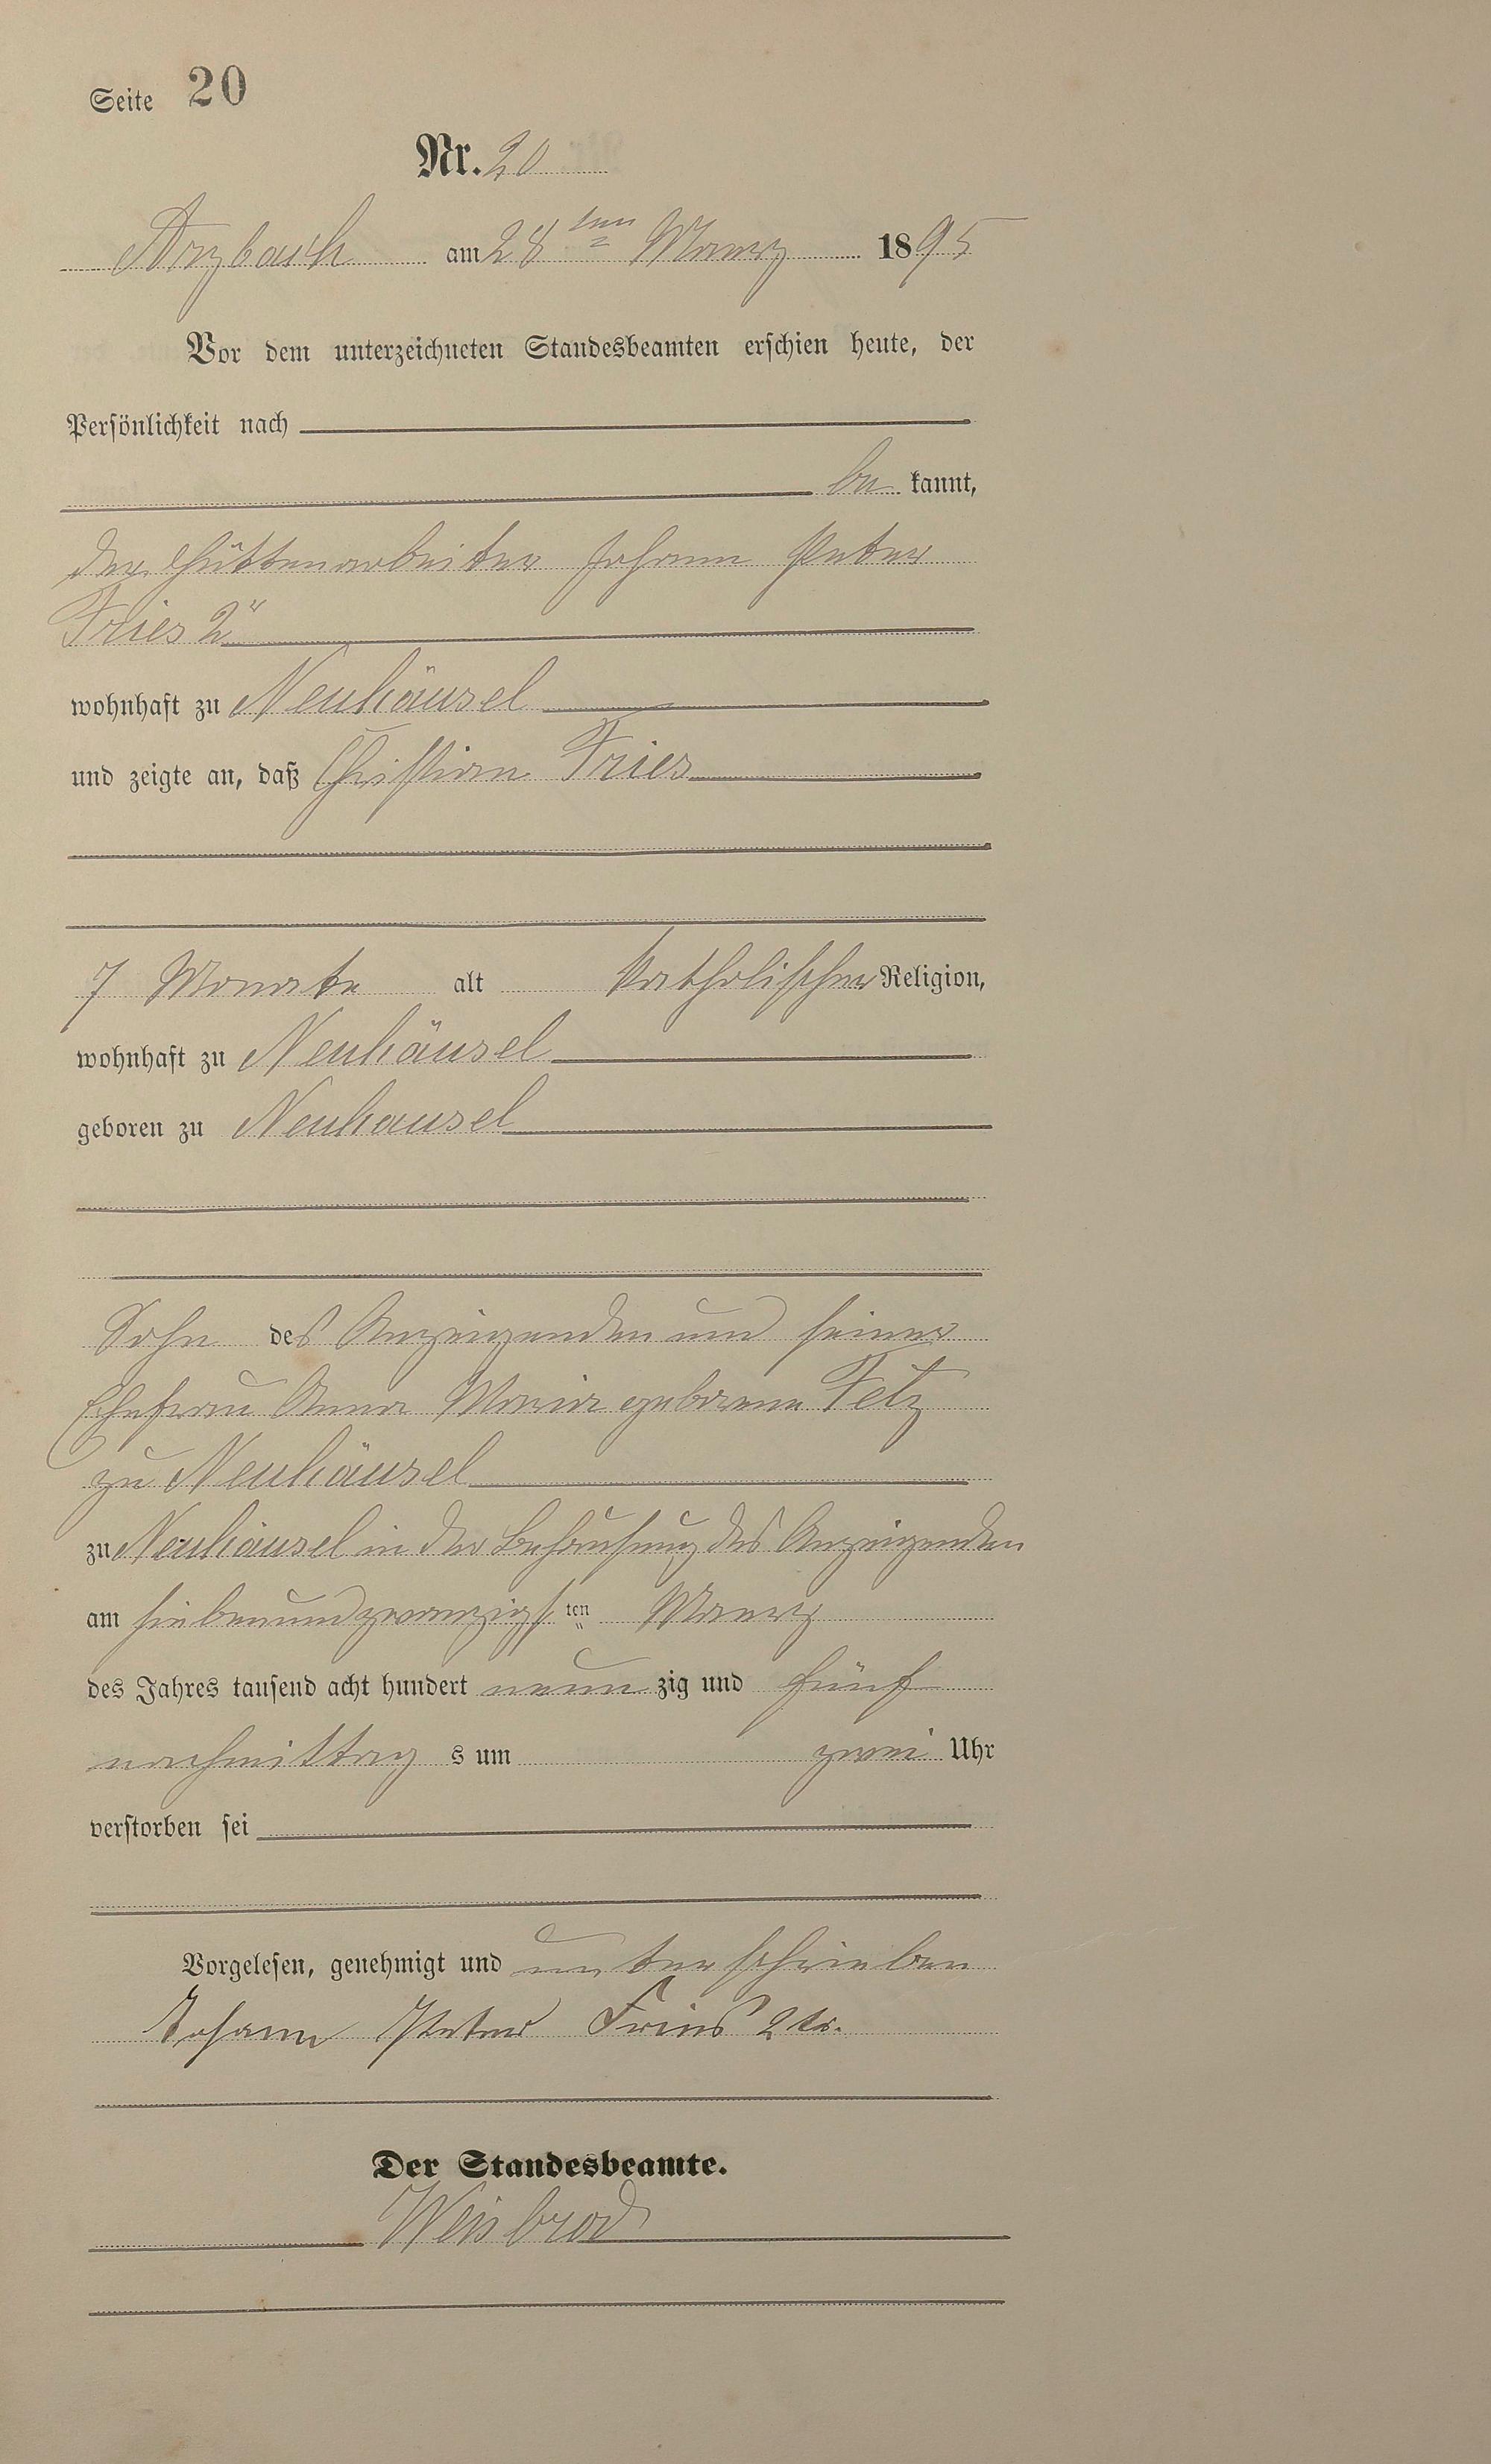 Seite 20
Nr. 20
Arzbach am 28ten Maerz 1895
Vor dem unterzeichneten Standesbeamten erschien heute, der
Persönlichkeit nach
be kannt,
der Hüttenarbeiter Johann Peter
Fries 2r
wohnhaft zu Neuhäusel
und zeigte an, daß Christian Fries
7 Monate alt katholischer Religion,
wohnhaft zu Neuhäusel
geboren zu Neuhausel
Sohn des Anzeigenden und seiner
Ehefrau Anna Maria geborene Felz
zu Neuhäusel
zu Neuhäusel in der Behausung des Anzeigenden
am siebenundzwanzigsten Maerz
des Jahres tausend acht hundert neun zig und fünf
nachmittag s um zwei Uhr
verstorben sei
Vorgelesen, genehmigt und unterschrieben
Johann Peter Fries 2tr.
Der Standesbeamte.
Weisbrod